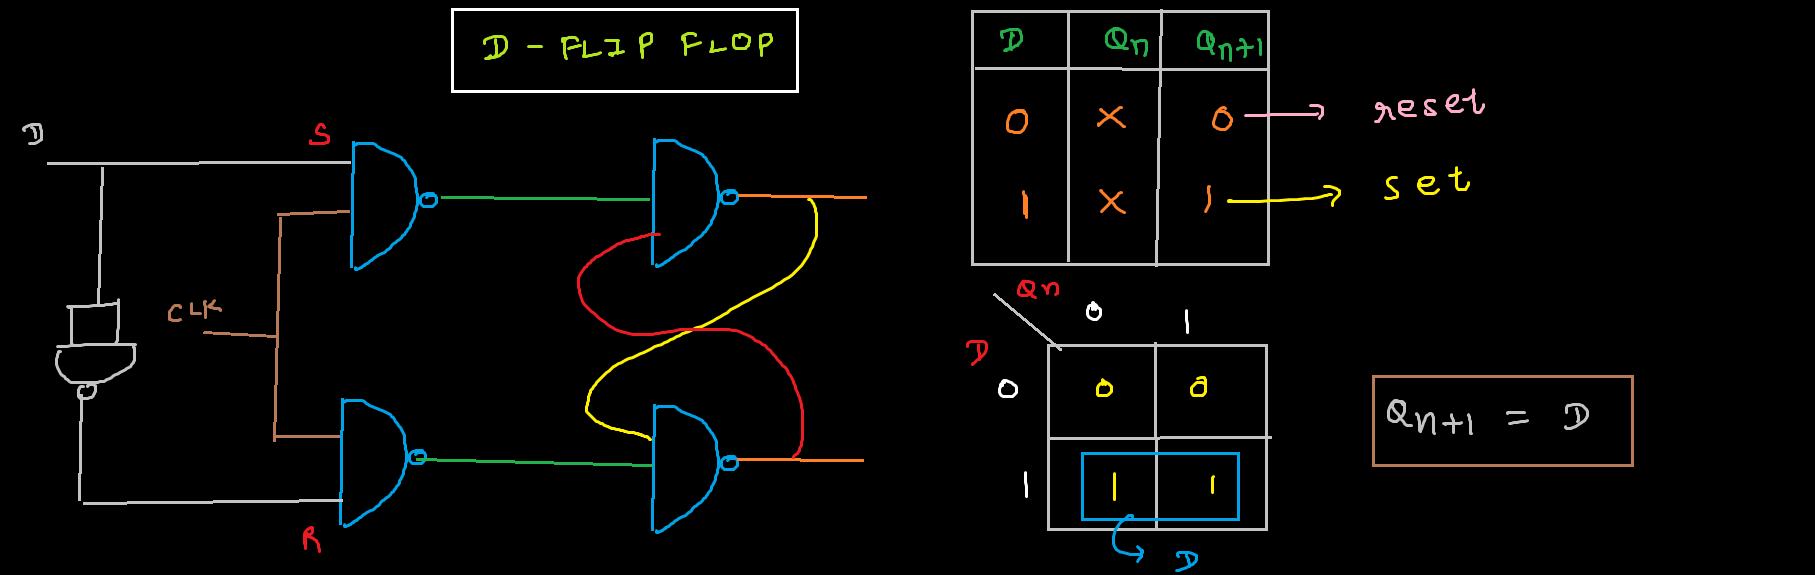 D - FLIP FLOP
D
S
CLK
R
D Qn Qn+1
0 X 0 → reset
1 X 1 → set
Qn
0 1
D
0 0 0
1 1 1
D
Qn+1 = D